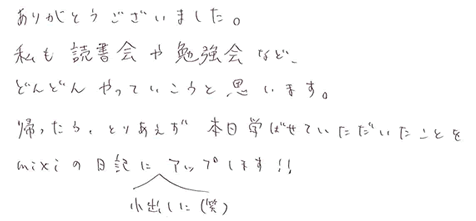 ありがとうございました。
私も読書会や勉強会など、
どんどんやっていこうと思います。
帰ったら、とりあえず本日学ばせていただいたことを
mixiの日記にアップします!!
小出しに(笑)